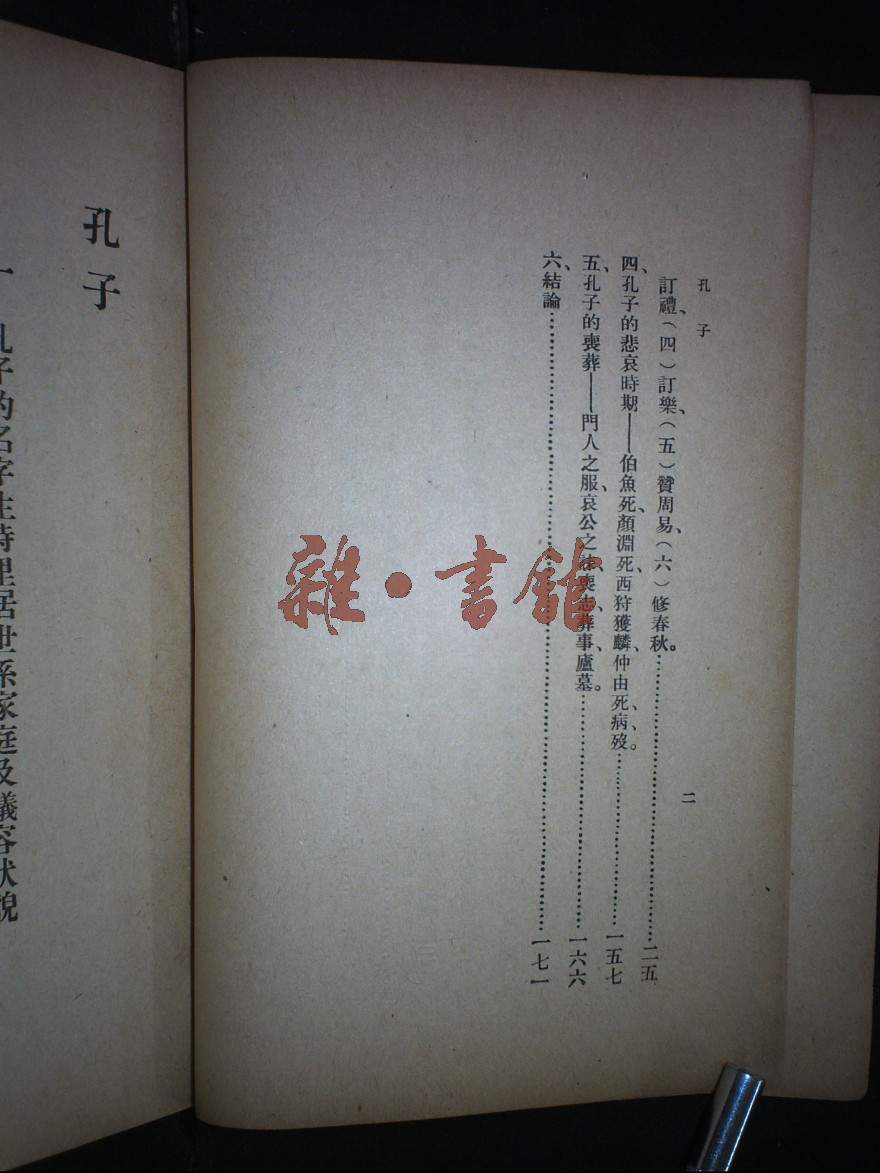 孔子
訂禮、(四)訂樂、(五)贊周易、(六)修春秋。……二五
四、孔子的悲哀時期——伯魚死、顏淵死、西狩獲麟、仲由死、病歿。……一五七
五、孔子的喪葬——門人之服、哀公之誄、喪志、葬事、廬墓。……一六六
六、結論……一七一
二
孔子
孔子的名字生時里居世系家庭及儀容狀貌
雜·書館